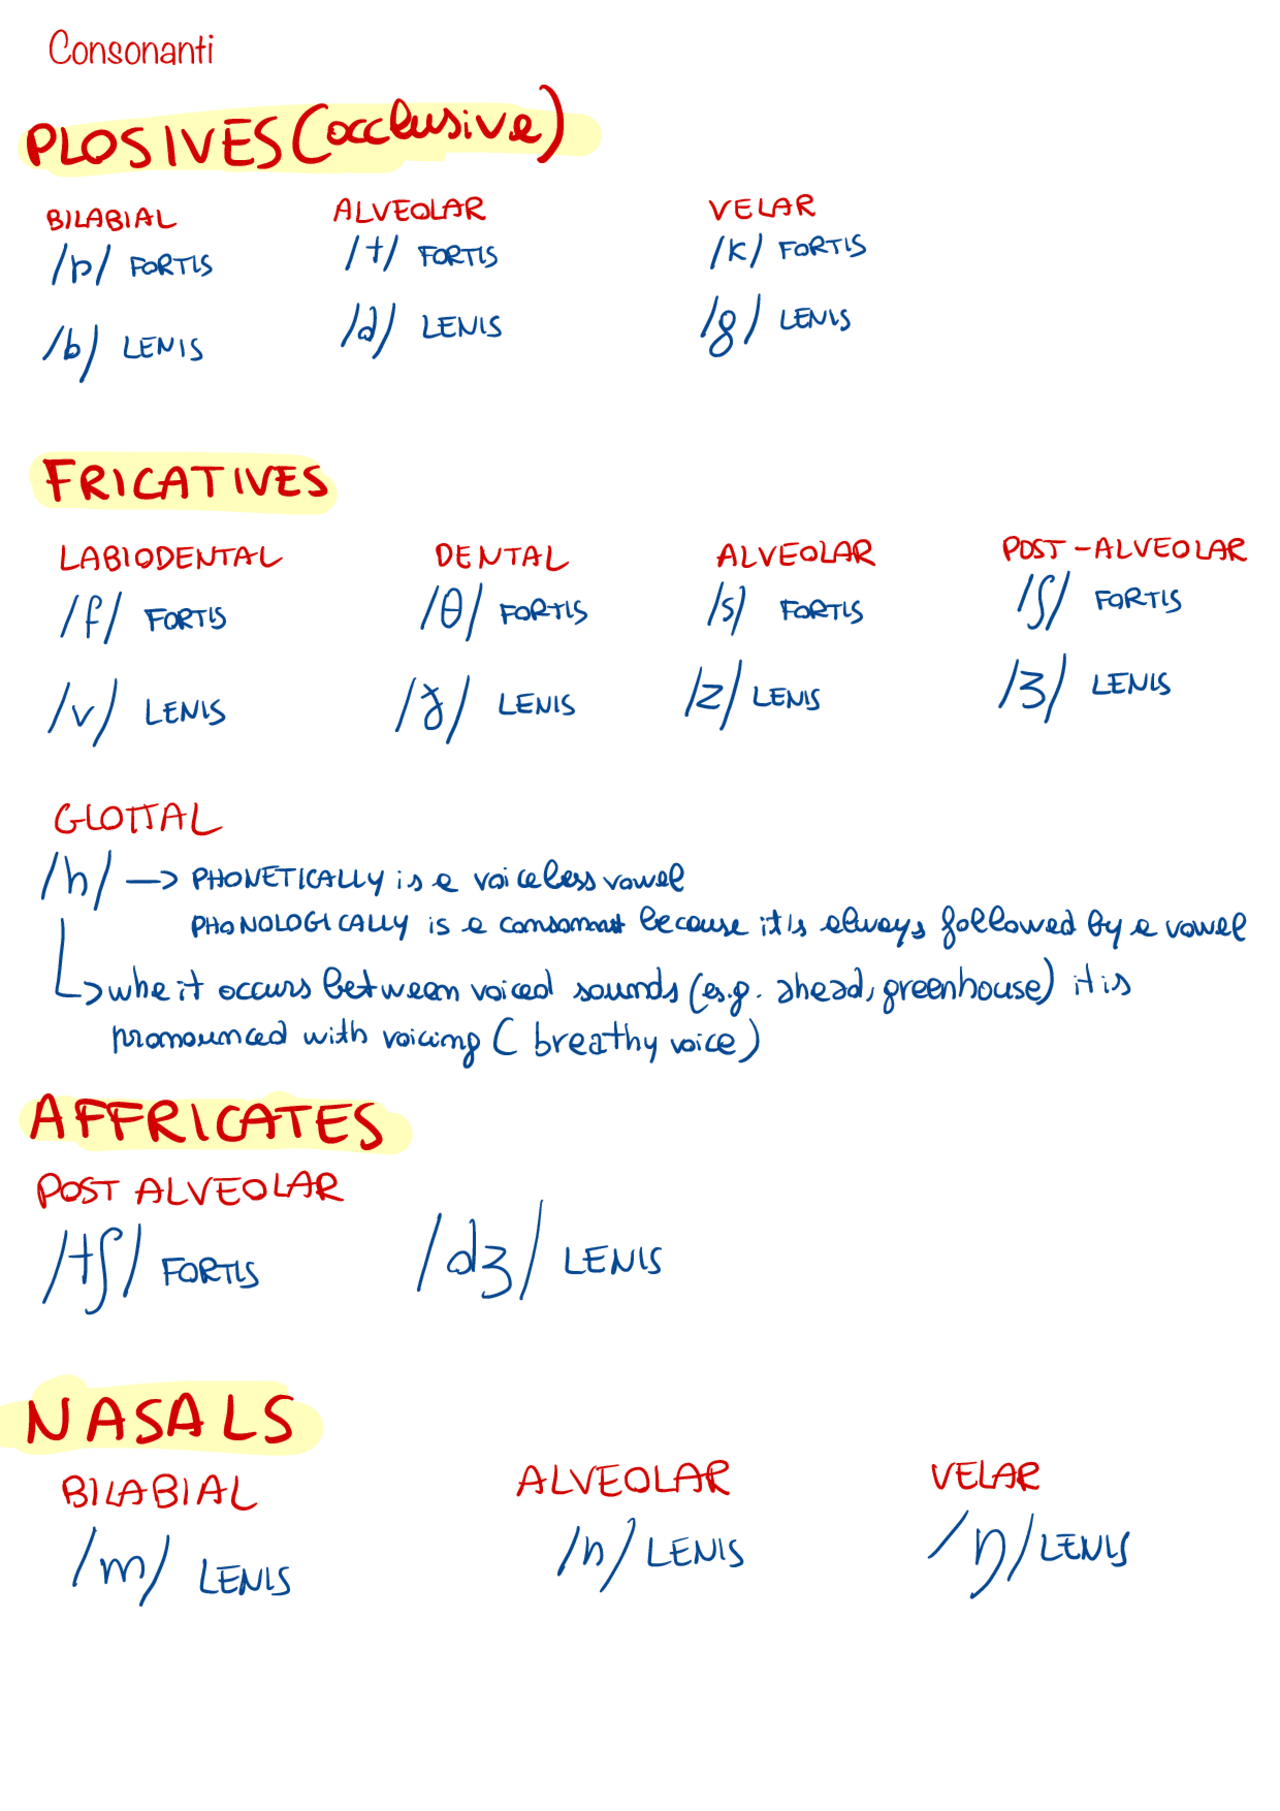 Consonanti
PLOSIVES (occlusive)
BILABIAL ALVEOLAR VELAR
/p/ FORTIS /t/ FORTIS /k/ FORTIS
/b/ LENIS /d/ LENIS /g/ LENIS
FRICATIVES
LABIODENTAL DENTAL ALVEOLAR POST-ALVEOLAR
/f/ FORTIS /θ/ FORTIS /s/ FORTIS /ʃ/ FORTIS
/v/ LENIS /ð/ LENIS /z/ LENIS /ʒ/ LENIS
GLOTTAL
/h/ → PHONETICALLY is a voiceless vowel
PHONOLOGICALLY is a consonant because it's always followed by a vowel
↳ whe it occurs between voiced sounds (es.g. ahead, greenhouse) it is
pronounced with voicing ( breathy voice)
AFFRICATES
POST ALVEOLAR
/tʃ/ FORTIS /dʒ/ LENIS
NASALS
BILABIAL ALVEOLAR VELAR
/m/ LENIS /n/ LENIS /ŋ/ LENIS